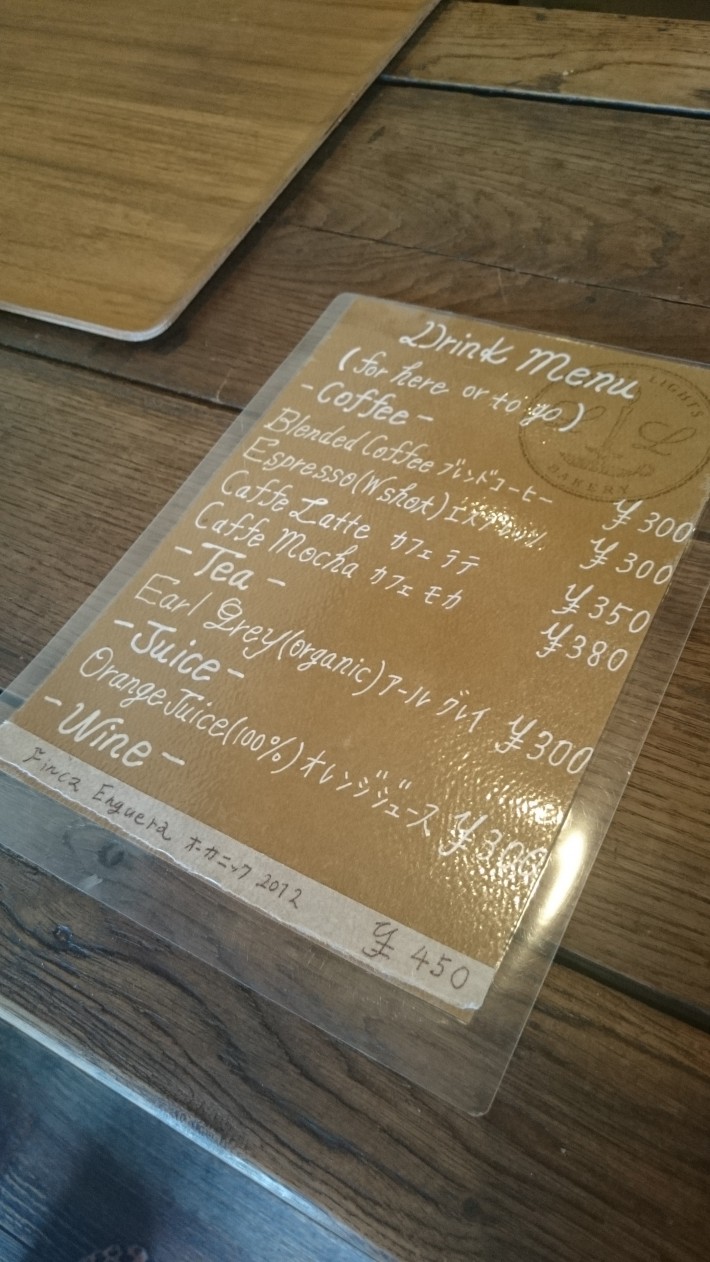 Drink Menu
(for here or to go)
LIGHTS
L L
BAKERY
-Coffee-
Blended Coffee ブレンドコーヒー ¥300
Espresso(W shot) エスプレッソ ¥300
Caffe Latte カフェ ラテ ¥350
Caffe Mocha カフェ モカ ¥380
-Tea-
Earl Grey(organic) アールグレイ ¥300
-Juice-
Orange Juice(100%) オレンジジュース ¥300
-Wine-
Finca Enguera オーガニック 2012 ¥450